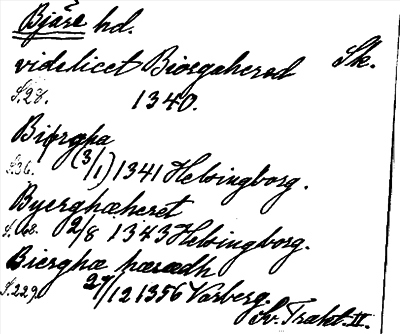 Bjäre hd.
videlicet Biosgaherad Sk.
S.28. 1340.
Biorgha
S.36. (3/1) 1341 Helsingborg.
Byerghæheret
S. 68. 2/8 1343 Helsingborg.
Bierghæ hæradh
S.229. 27/12 1356 Varberg.
Sv. Trakt. II.